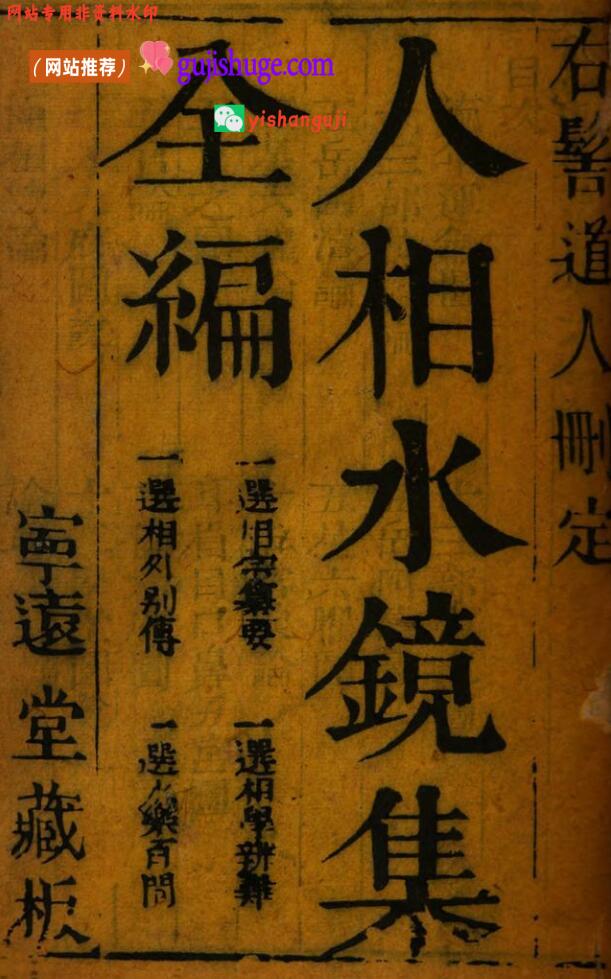 网站专用非资料水印
（网站推荐）
gujishuge.com
yishanguji
右髻道人刪定
人相水鏡集
全編
一選相學辨難
一選相外別傳
一選
百問
寧遠堂藏板